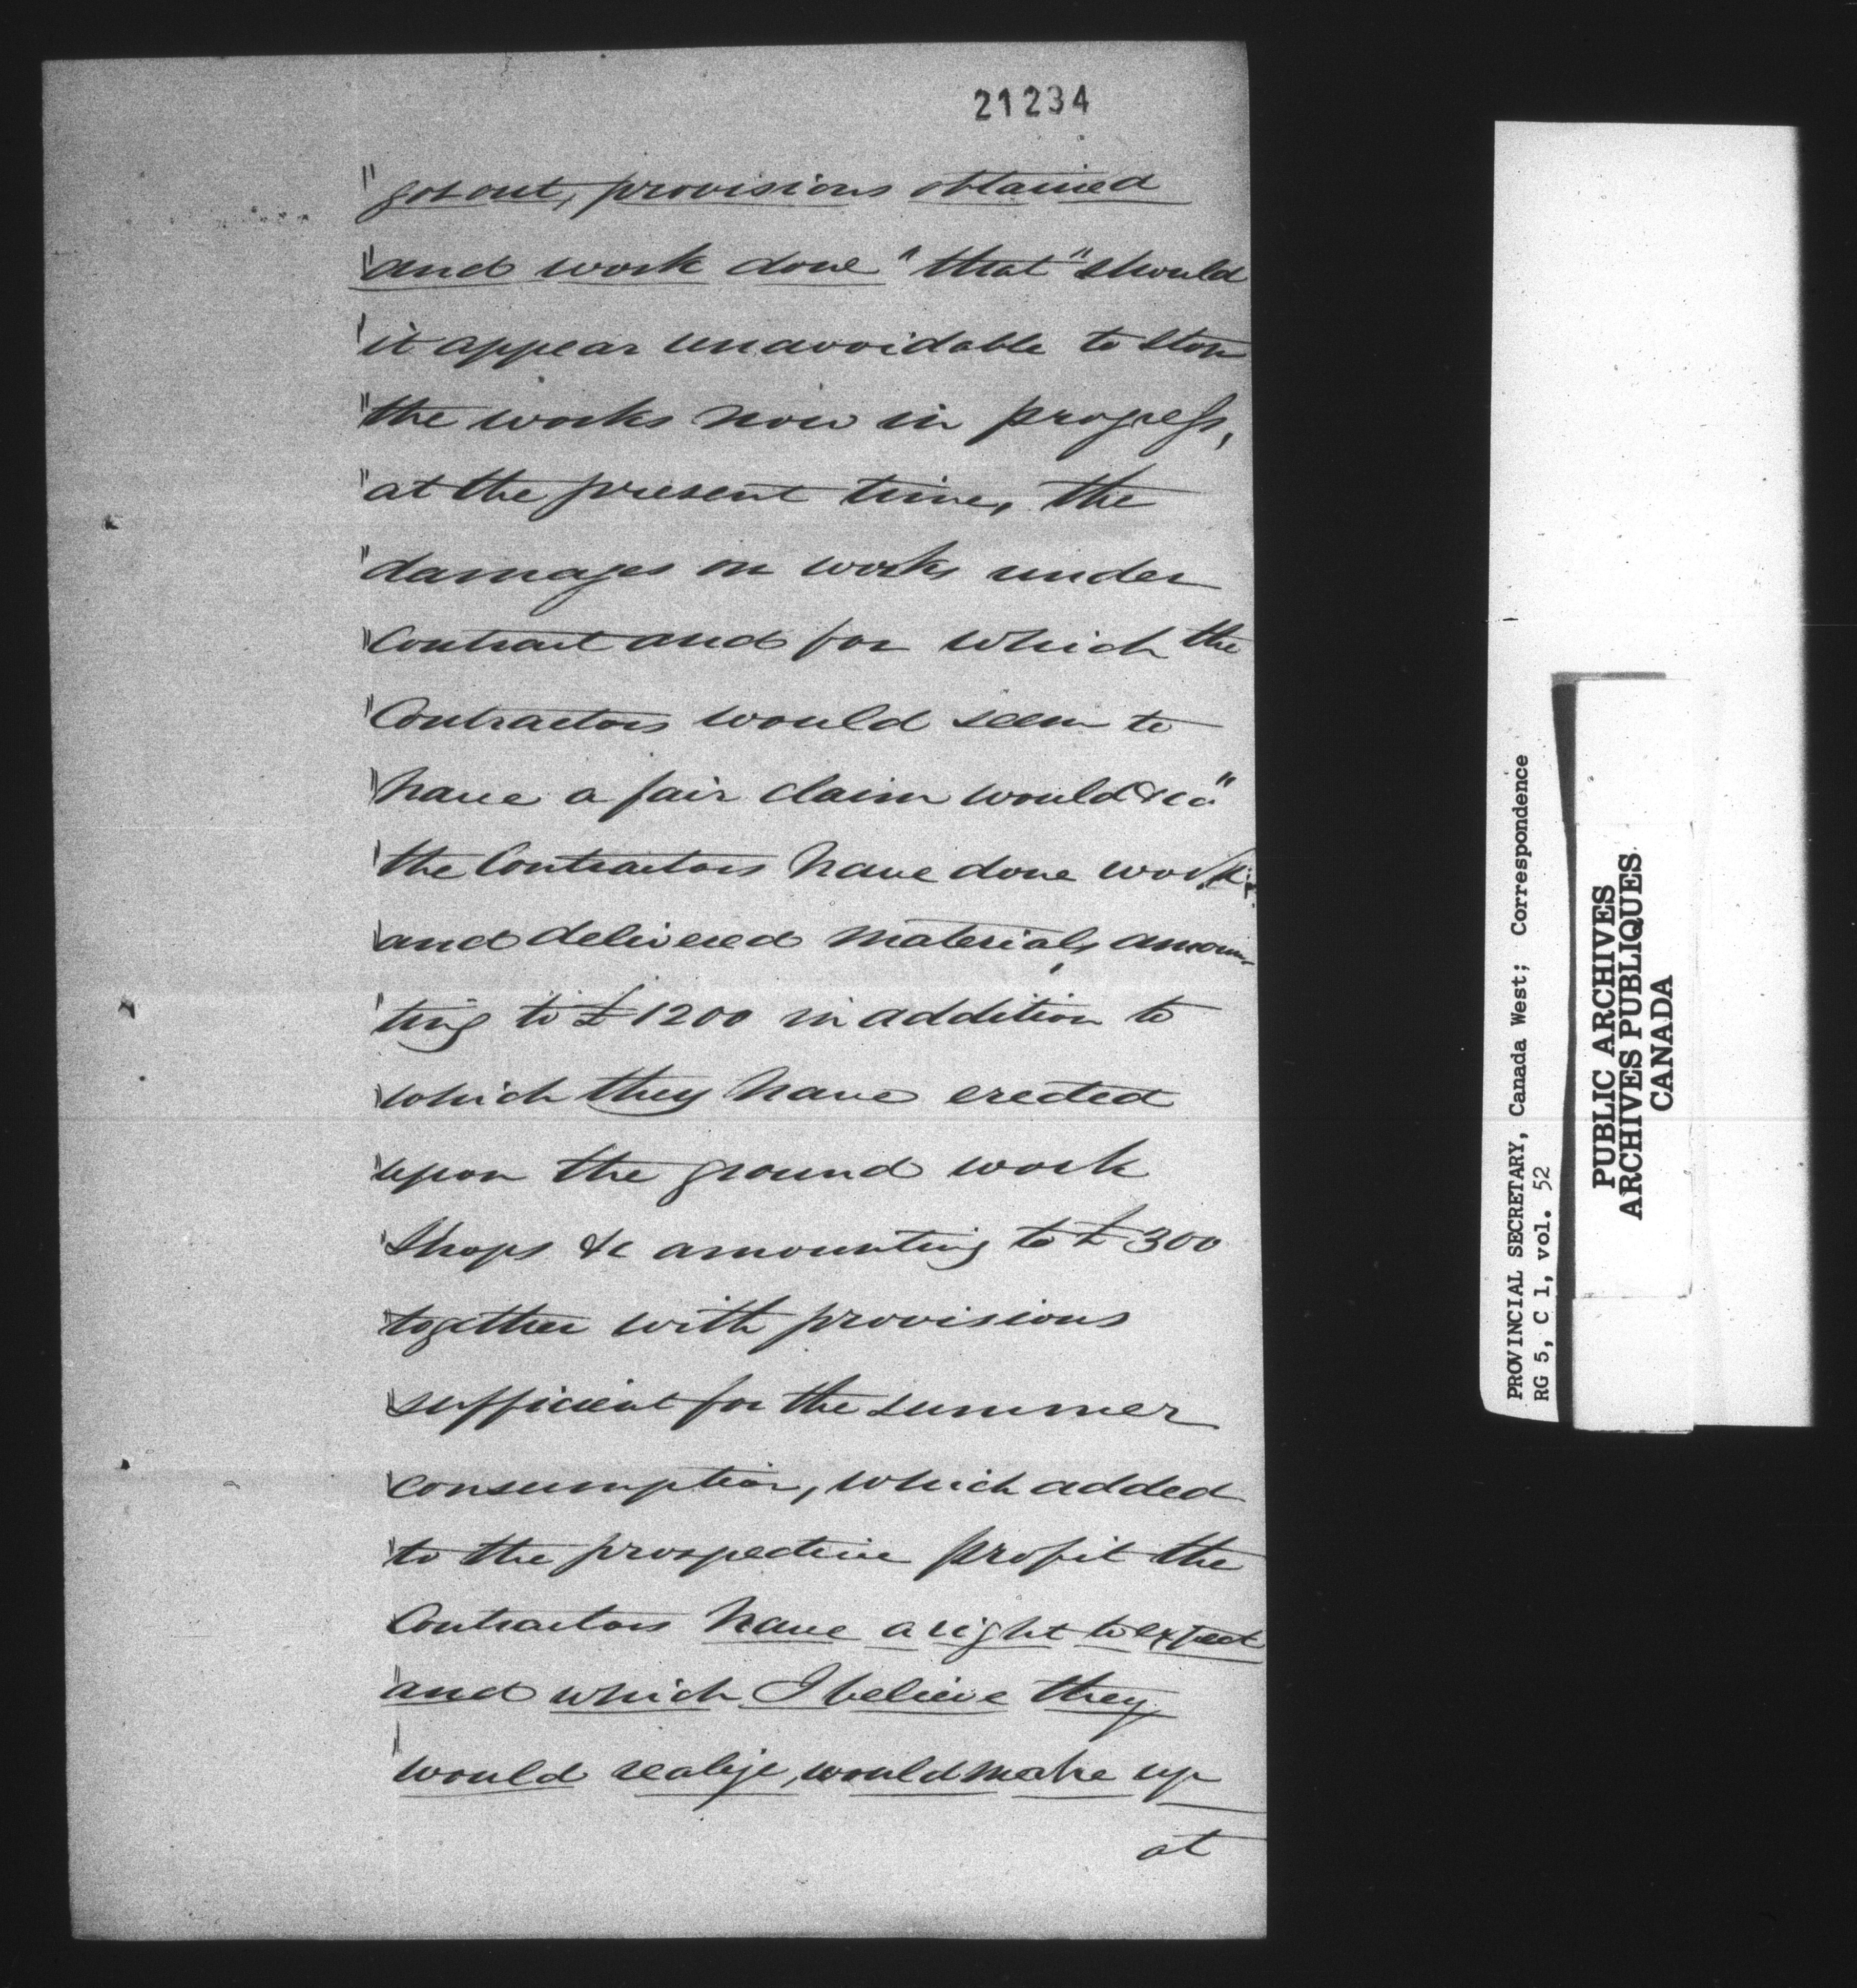 21234
"got out, provisions obtained
"and work done" that "should
"it appear unavoidable to stop
"the works now in progress,
"at the present time, the
"damages on works under
"Contract and for which the
"Contractors would seem to
"have a fair claim would &ca"
"the Contractors have done work
"and delivered materials, amoun-
"ting to £1200 in addition to
"which they have erected
"upon the ground work
"Shops &c amounting to £300
"together with provisions
"sufficient for the summer
"consumption, which added
"to the prospective profit the
Contractors have a right to expect
"and which I believe they
"would realize, would make up
at
PROVINCIAL SECRETARY, Canada West; Correspondence
RG 5, C 1, vol. 52
PUBLIC ARCHIVES
ARCHIVES PUBLIQUES
CANADA